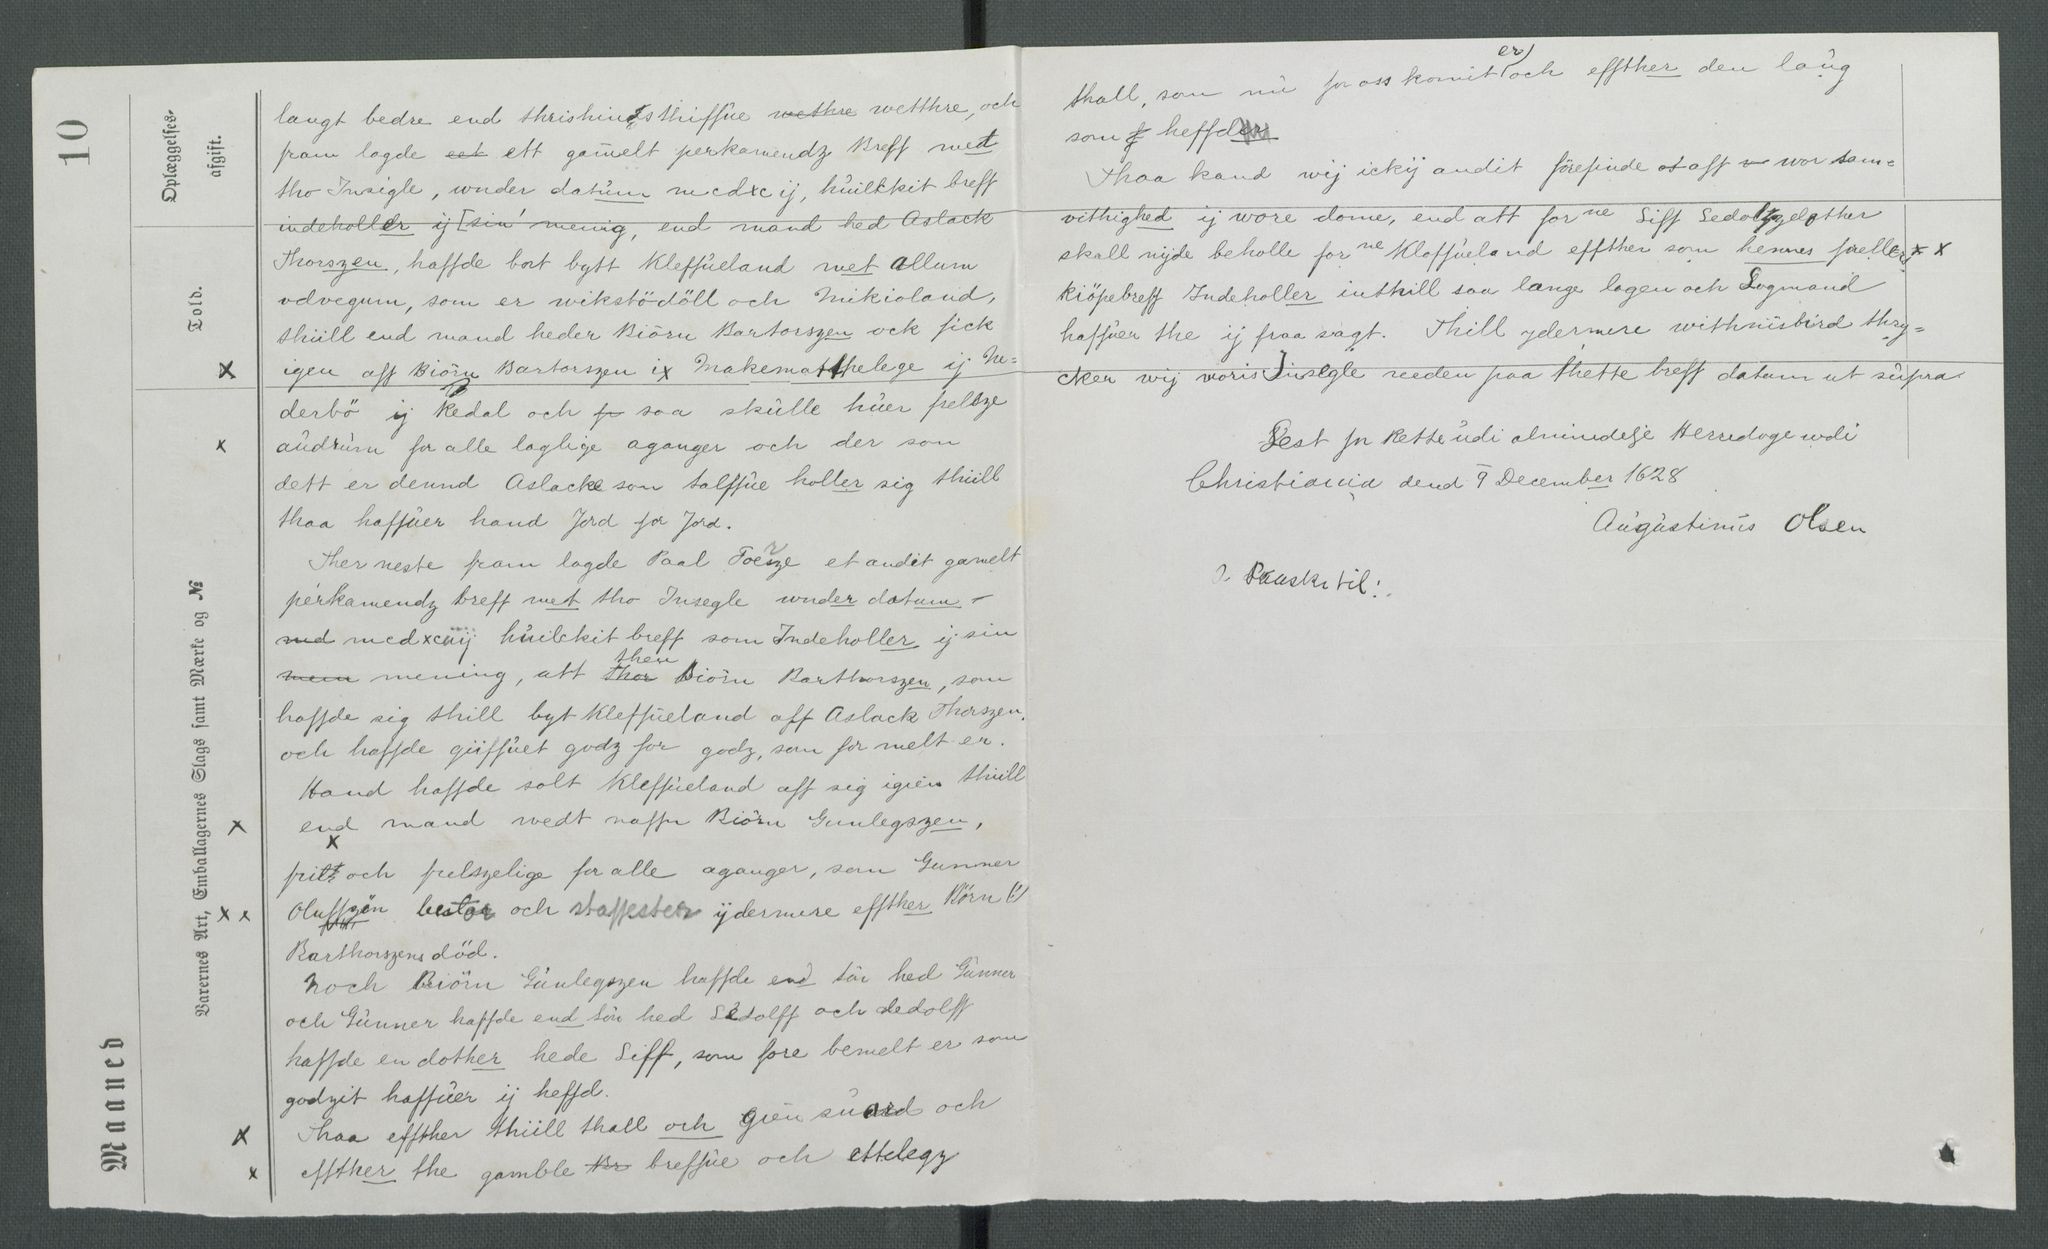 10
Oplæggelses-
afgift.
Told.
Varernes Art, Emballagernes Slags samt Mærke og №
Maaned
langt bedre end thrishindsthiffue wethre wetthre, och
fram lagde eet ett gamelt perkamendz Breff met
tho Insigle, wnder datum mcdxcij, huilkit breff
indeholler ij [sin' menig, end mand hed Aslack
Thorszen, haffde bort bytt Kleffueland met allum
vdvegum, som er wikstödöll och Mikioland,
thiill end mand heder Biörn Bartorszen ock fick
x igen aff Biörn Bartorszen ix Makematthelege ij Ne=
derbö ij Kedal och fr saa skulle huer frelsze
x audrum for alle laglige aganger och der som
dett er dennd Aslacke som talffue holler sig thiill
thaa haffuer hand Jord for Jord.
Ther neste fram lagde Paal Toersze et andit gamelt
perkamendz breff met tho Insegle wnder datum
md mcdxciiij huilckit breff som Indeholler ij sin
mem mening, att Thor then Biörn Barthorszen, som
haffde sig thill byt Kleffueland aff Aslack Thorszen.
och haffde giiffuet godz for godz, som for melt er.
Hand haffde solt Kleffueland aff sig igien thiill
x end mand wedt naffn Biörn Gunlegszen,
x
frit och frelszelige for alle aganger, som Gunner
x x Oluffzön bestor och staffester ijdermere effther Börn (i)
Barthorszens död.
Noch Biörn Gunlegszen haffde end sön hed Gunner
och Gunner haffde end sön hed Sedolff och Sedolff
haffde en dother hede Siff, som fore bemelt er som
godzit haffuer ij heffd.
x Thaa effther thiill thall och gien suard och
x effther the gamble Br breffue och ettelegz
thall, som nu for oss komit (er) och effther den laug
som f heffder
Thaa kand wij ickij andit förefinde at aff w wor sam=
vithighed ij wore dome, end att forne Siff Sedolfzdother
skall nyde beholle forne Kleffueland effther som hennes forellers x x
kiöpebreff Indeholler inthill saa lange lagen och Logmand
haffuer the ij fraa sagt. Thill ydermere withnisbird thry=
cker wij woris Insegle neden paa thette breff datum ut supra.
Lest for Rette udi almindelje Herredage udi
Christiania dend 9 December 1628
Augustinus Olsen
Paaskr til: